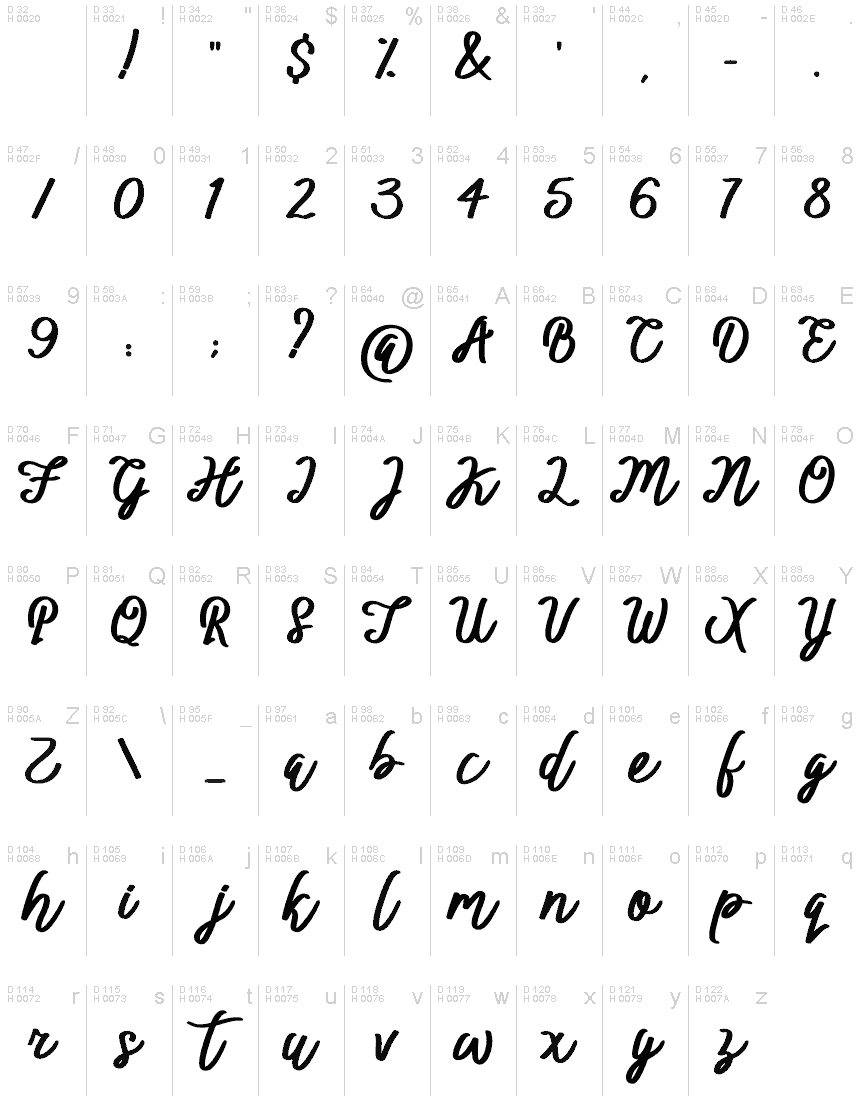 D 32 H 0020 D 33 H 0021 ! D 34 H 0022 " D 36 H 0024 $ D 37 H 0025 % D 38 H 0026 & D 39 H 0027 ' D 44 H 002C , D 45 H 002D - D 46 H 002E .
! " $ % & ' , - .
D 47 H 002F / D 48 H 0030 0 D 49 H 0031 1 D 50 H 0032 2 D 51 H 0033 3 D 52 H 0034 4 D 53 H 0035 5 D 54 H 0036 6 D 55 H 0037 7 D 56 H 0038 8
/ 0 1 2 3 4 5 6 7 8
D 57 H 0039 9 D 58 H 003A : D 59 H 003B ; D 63 H 003F ? D 64 H 0040 @ D 65 H 0041 A D 66 H 0042 B D 67 H 0043 C D 68 H 0044 D D 69 H 0045 E
9 : ; ? @ A B C D E
D 70 H 0046 F D 71 H 0047 G D 72 H 0048 H D 73 H 0049 I D 74 H 004A J D 75 H 004B K D 76 H 004C L D 77 H 004D M D 78 H 004E N D 79 H 004F O
F G H I J K L M N O
D 80 H 0050 P D 81 H 0051 Q D 82 H 0052 R D 83 H 0053 S D 84 H 0054 T D 85 H 0055 U D 86 H 0056 V D 87 H 0057 W D 88 H 0058 X D 89 H 0059 Y
P Q R S T U V W X Y
D 90 H 005A Z D 92 H 005C \ D 95 H 005F _ D 97 H 0061 a D 98 H 0062 b D 99 H 0063 c D 100 H 0064 d D 101 H 0065 e D 102 H 0066 f D 103 H 0067 g
Z \ _ a b c d e f g
D 104 H 0068 h D 105 H 0069 i D 106 H 006A j D 107 H 006B k D 108 H 006C l D 109 H 006D m D 110 H 006E n D 111 H 006F o D 112 H 0070 p D 113 H 0071 q
h i j k l m n o p q
D 114 H 0072 r D 115 H 0073 s D 116 H 0074 t D 117 H 0075 u D 118 H 0076 v D 119 H 0077 w D 120 H 0078 x D 121 H 0079 y D 122 H 007A z
r s t u v w x y z